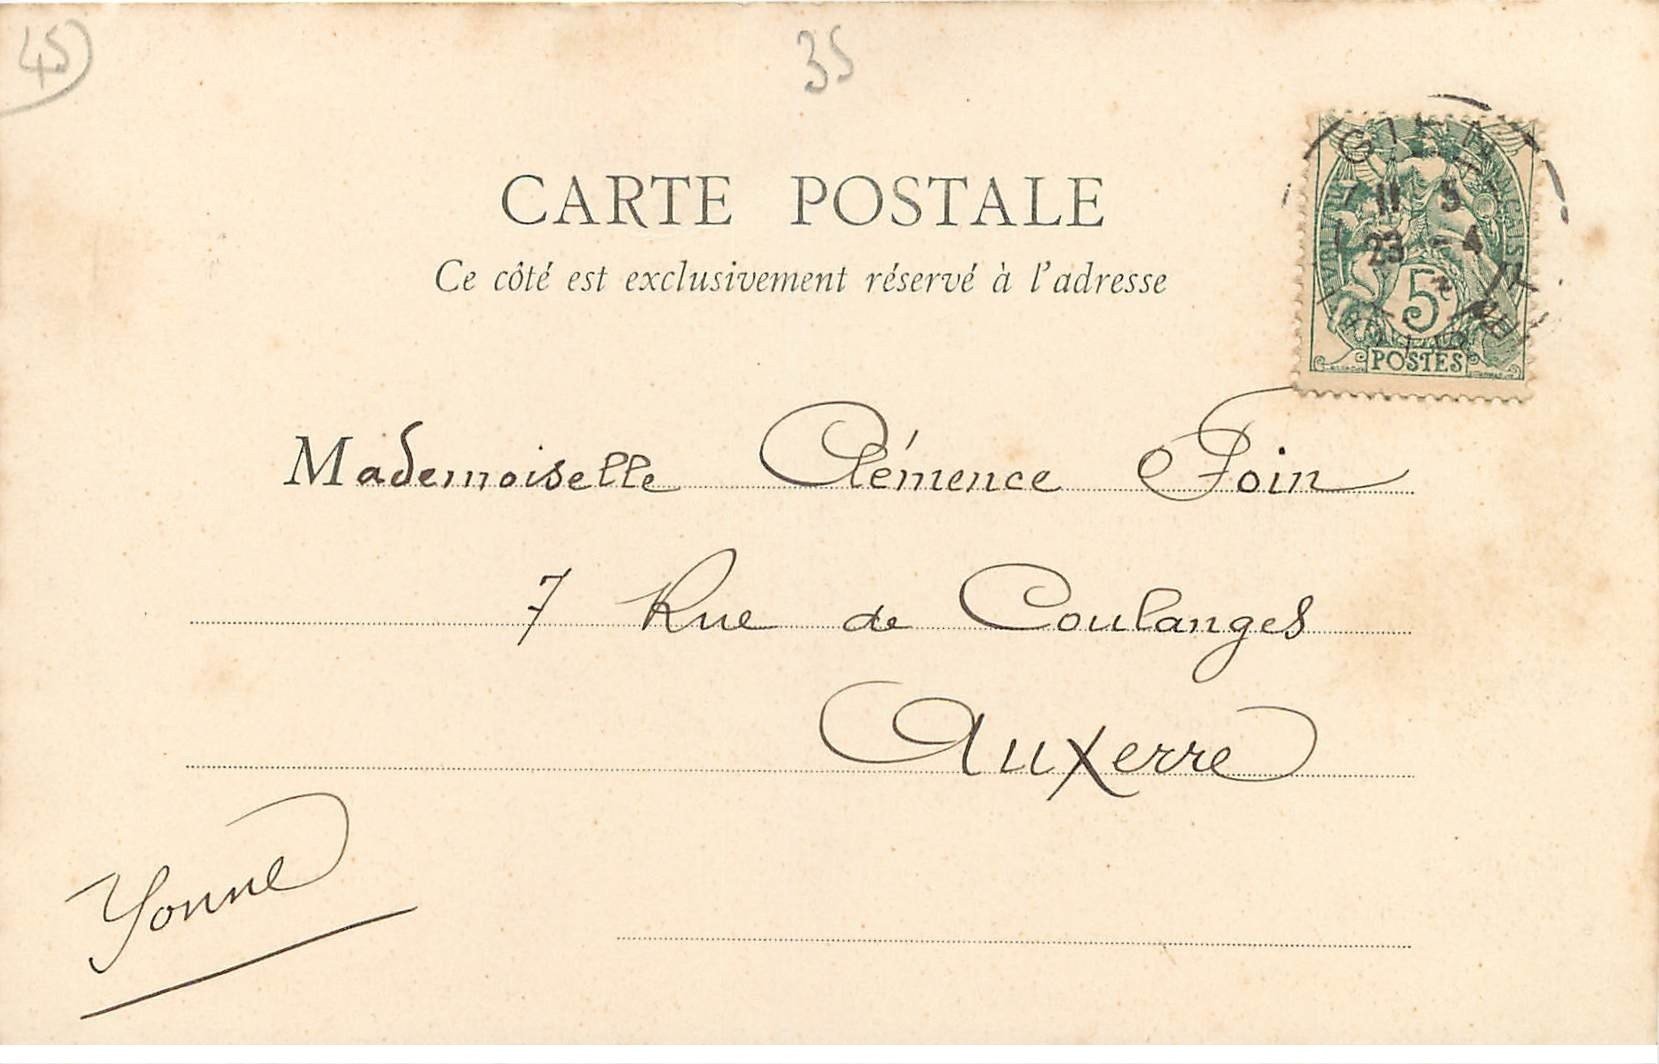 45
35
CARTE POSTALE
Ce côté est exclusivement réservé à l'adresse
GIEN
11 5
23 - 4
5c
POSTES
Mademoiselle Clémence Foin
7 Rue de Coulanges
Auxerre
Yonne